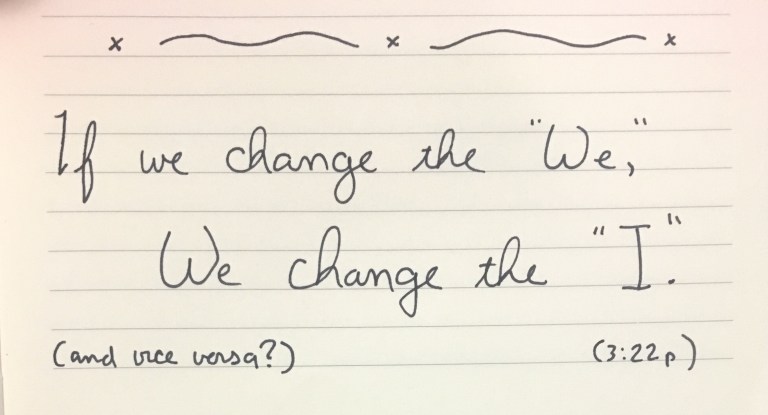 x x x
If we change the "We,"
We change the "I."
(and vice versa?) (3:22p)